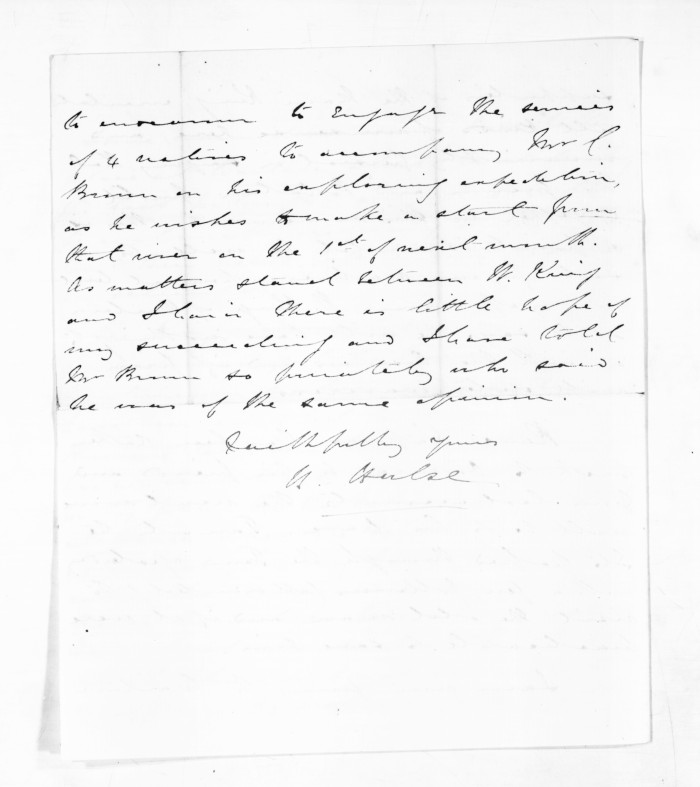 to endeavour to Engage the services
of 4 natives to accompany Mr C.
Brown on his exploring expedition,
as he wishes to make a start from
that river on the 1st of next month.
As matters stand between W. King
and I hair there is little hope of
my succeeding and I have told
Mr Brown so privately who said
he was of the same opinion.
Faithfully yours
W. Halse